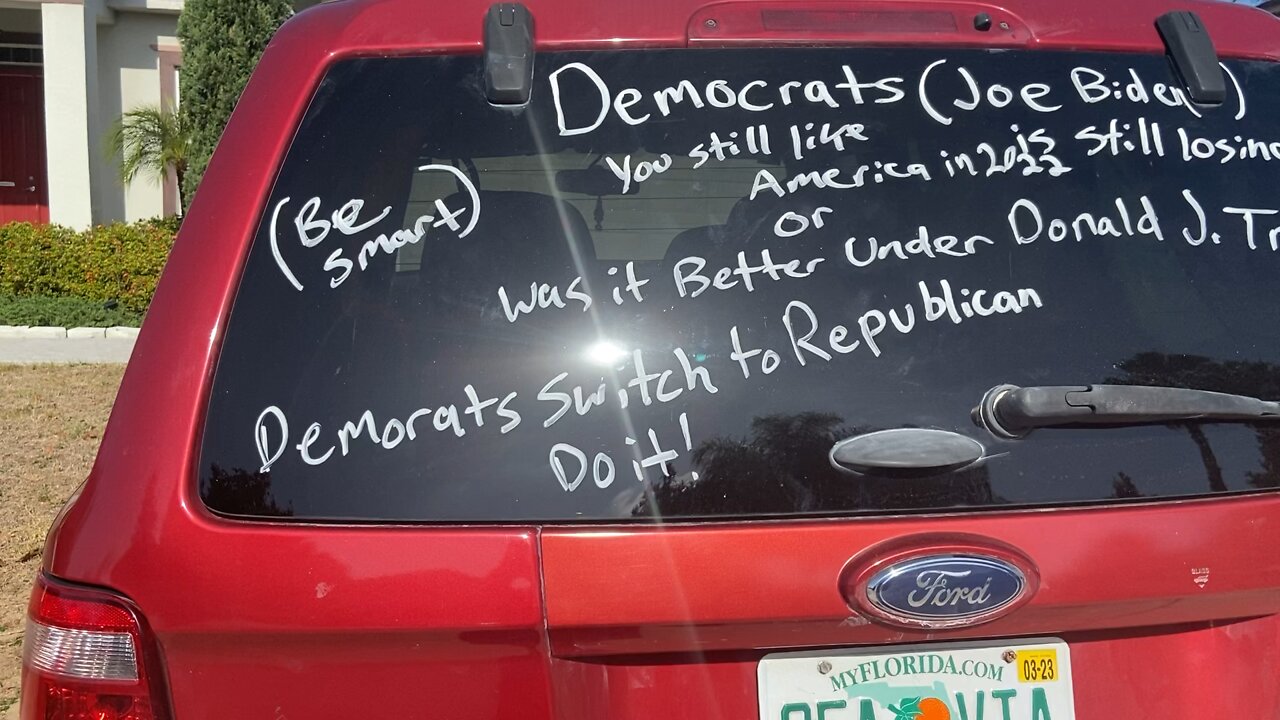 Democrats (Joe Biden)
You still like
America in 2022 is still losing
or
(Be
smart)
was it Better under Donald J.
Demorats switch to Republican
Do it!
Ford
MYFLORIDA.COM
03-23